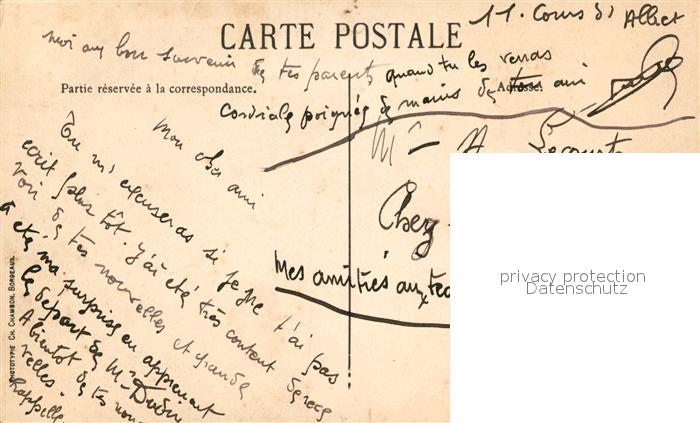 11. Cours d'Albret
CARTE POSTALE
moi au bon souvenir de tes parents quand tu les verras
Partie réservée à la correspondance.
Adresse.
Cordiale poignée de mains de ton ami
Mon cher ami
Tu m'excuseras si je ne t'ai pas
écrit plus tôt. J'ai été très content de rece
voir de tes nouvelles et grande
a été ma surprise en apprenant
le départ de M-
A bientôt de tes nou-
velles.
Rappelle
M- A.
Chez
Mes amitiés aux
PHOTOTYPIE CH. CHAMBON, BORDEAUX
privacy protection
Datenschutz